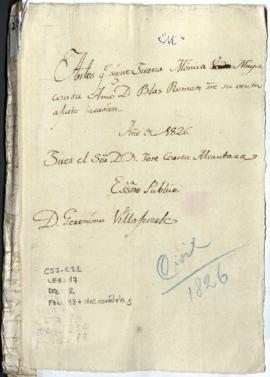 Autos q. sigue Juana Monica
con su Amo D. Blas Roman sre su venta
Año de 1826
Jues el Sor. D. D. Jose Garcia Alcantara
Essno Publico
D. Geronimo Villafuerte
Civil
1826
CSJ-CS1
LEG: 17
DOC: 2
FOL: 18 + dos carátulas